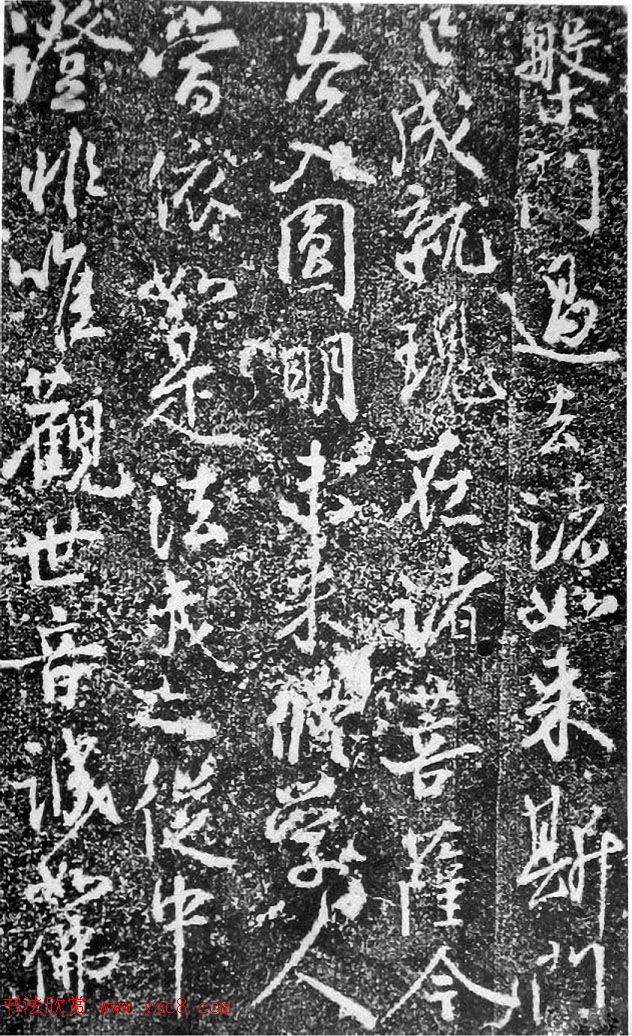 槃門過去諸如来斯門
已成就現在諸菩薩今
各入圓明未来修学人
當依如是法我亦從中
證非唯觀世音誠如佛
书法欣赏 www.yac8.com